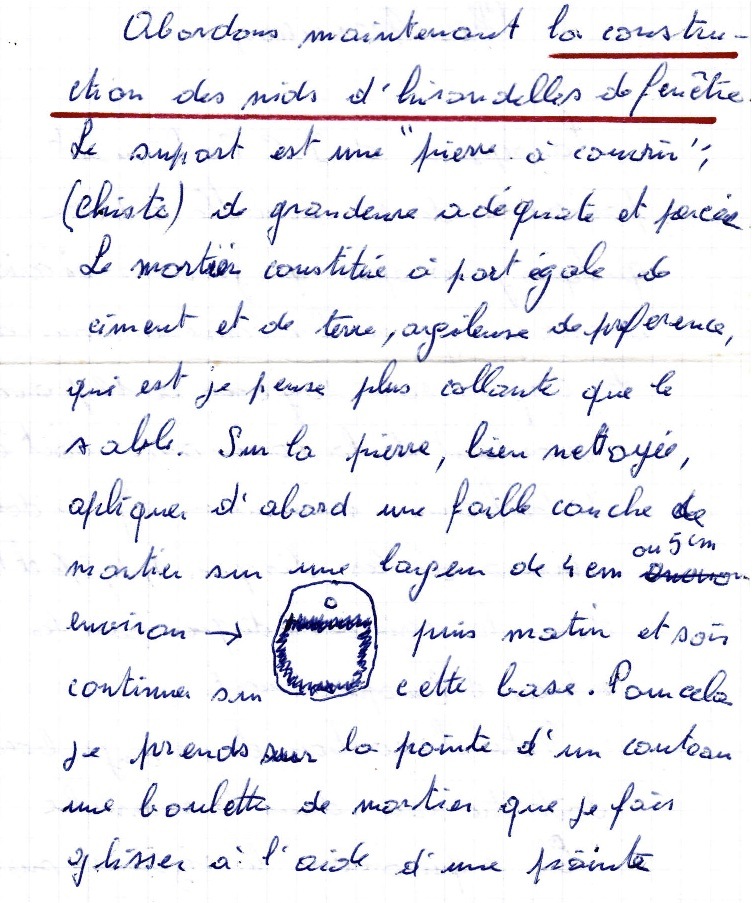 Abordons maintenant la constru-
ction des nids d'hirondelles de fenêtre.
Le suport est une "pierre à couvrir",
(Chiste) de grandeure adéquate et percée
Le mortier constituée à part égale de
ciment et de terre, argileuse de preference,
qui est je pense plus collante que le
sable. Sur la pierre, bien nettoyée,
apliquer d'abord une faible couche de
mortier sur une largeur de 4 cm ou 5 cm
environ → puis matin et soir
continuer sur cette base. Pour cela
je prends sur la pointe d'un couteau
une boulette de mortier que je fais
glisser à l'aide d'une pointe